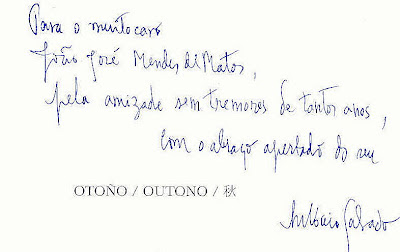 Para o muito caro
João José Mendes de Matos,
pela amizade sem tremores de tantos anos,
com o abraço apertado do seu
OTOÑO / OUTONO / 秋
António Salvado